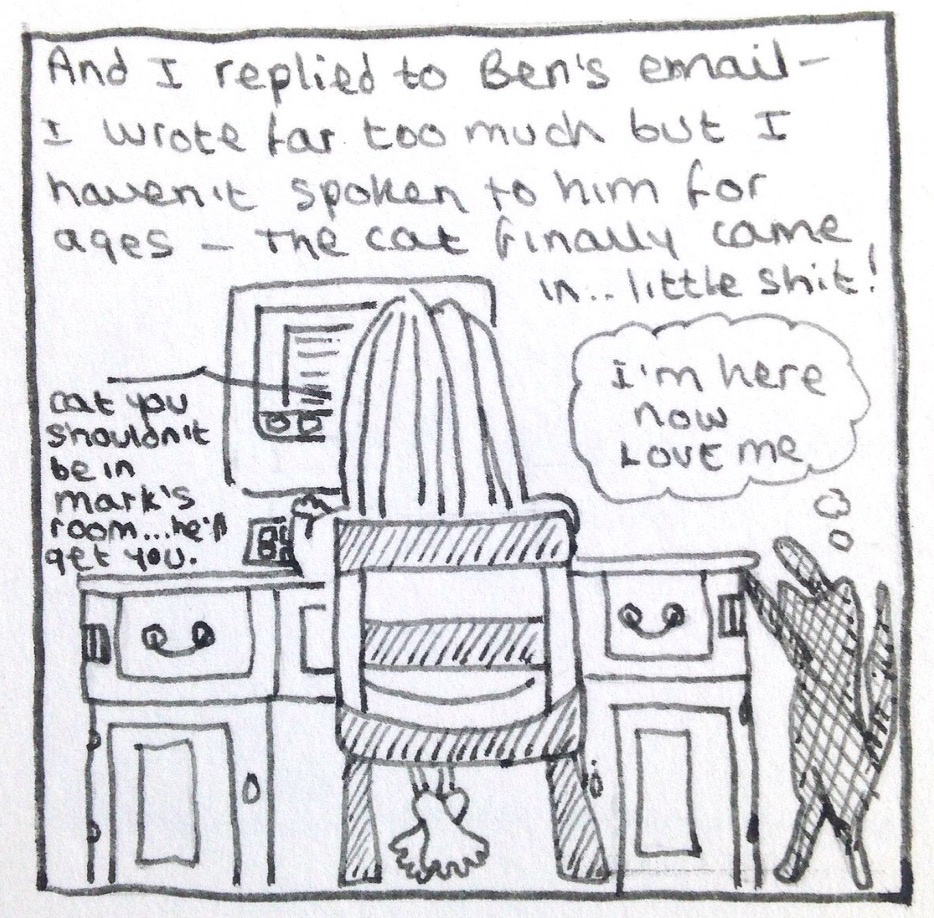 And I replied to Ben's email-
I wrote far too much but I
haven't spoken to him for
ages - The cat finally came
in.. little shit!
cat you
shouldn't
be in
mark's
room...he'll
get you.
I'm here
now
Love me